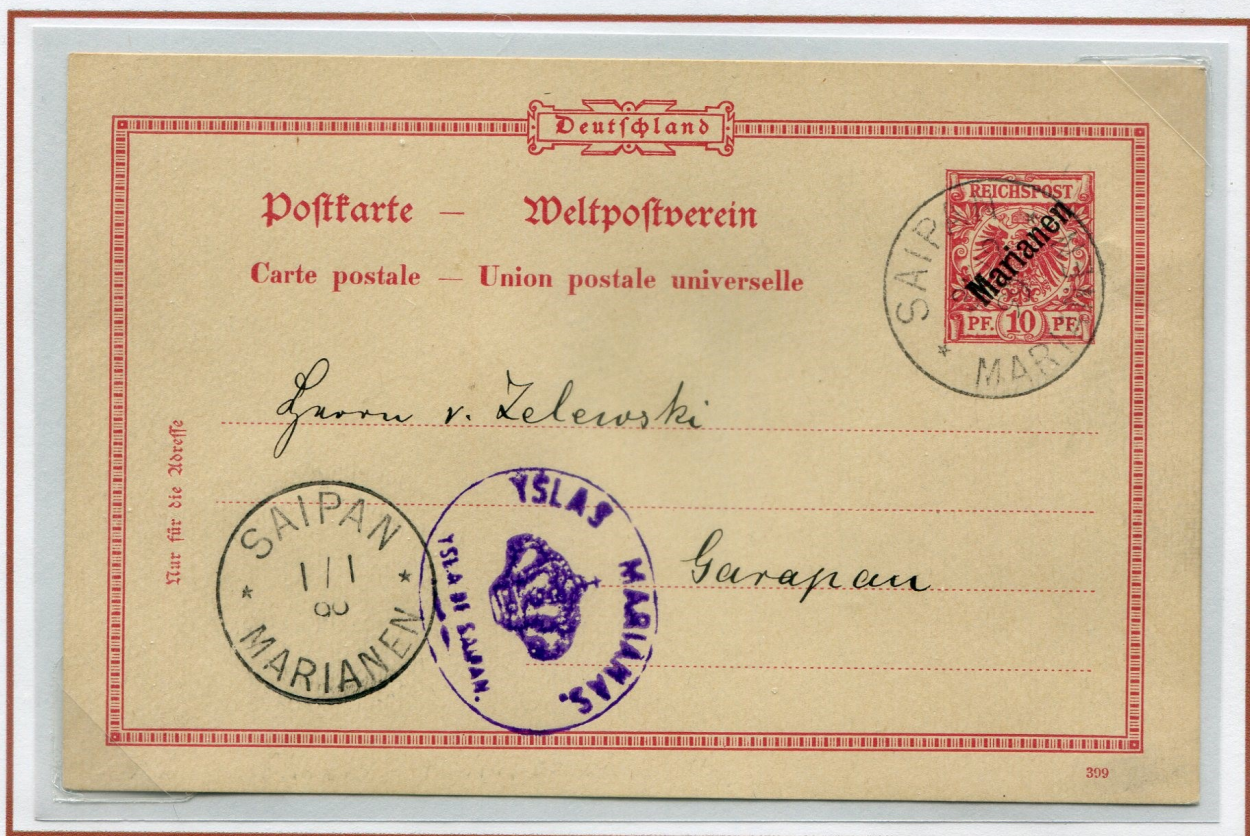 Deutschland
Postkarte — Weltpostverein
Carte postale — Union postale universelle
REICHSPOST
Marianen
PF. 10 PF.
SAIPAN
Herrn v. Zelewski
Garapan
Nur für die Adresse
SAIPAN
1/1
MARIANEN
YSLAS MARIANAS.
YSLA DE SAIPAN.
399